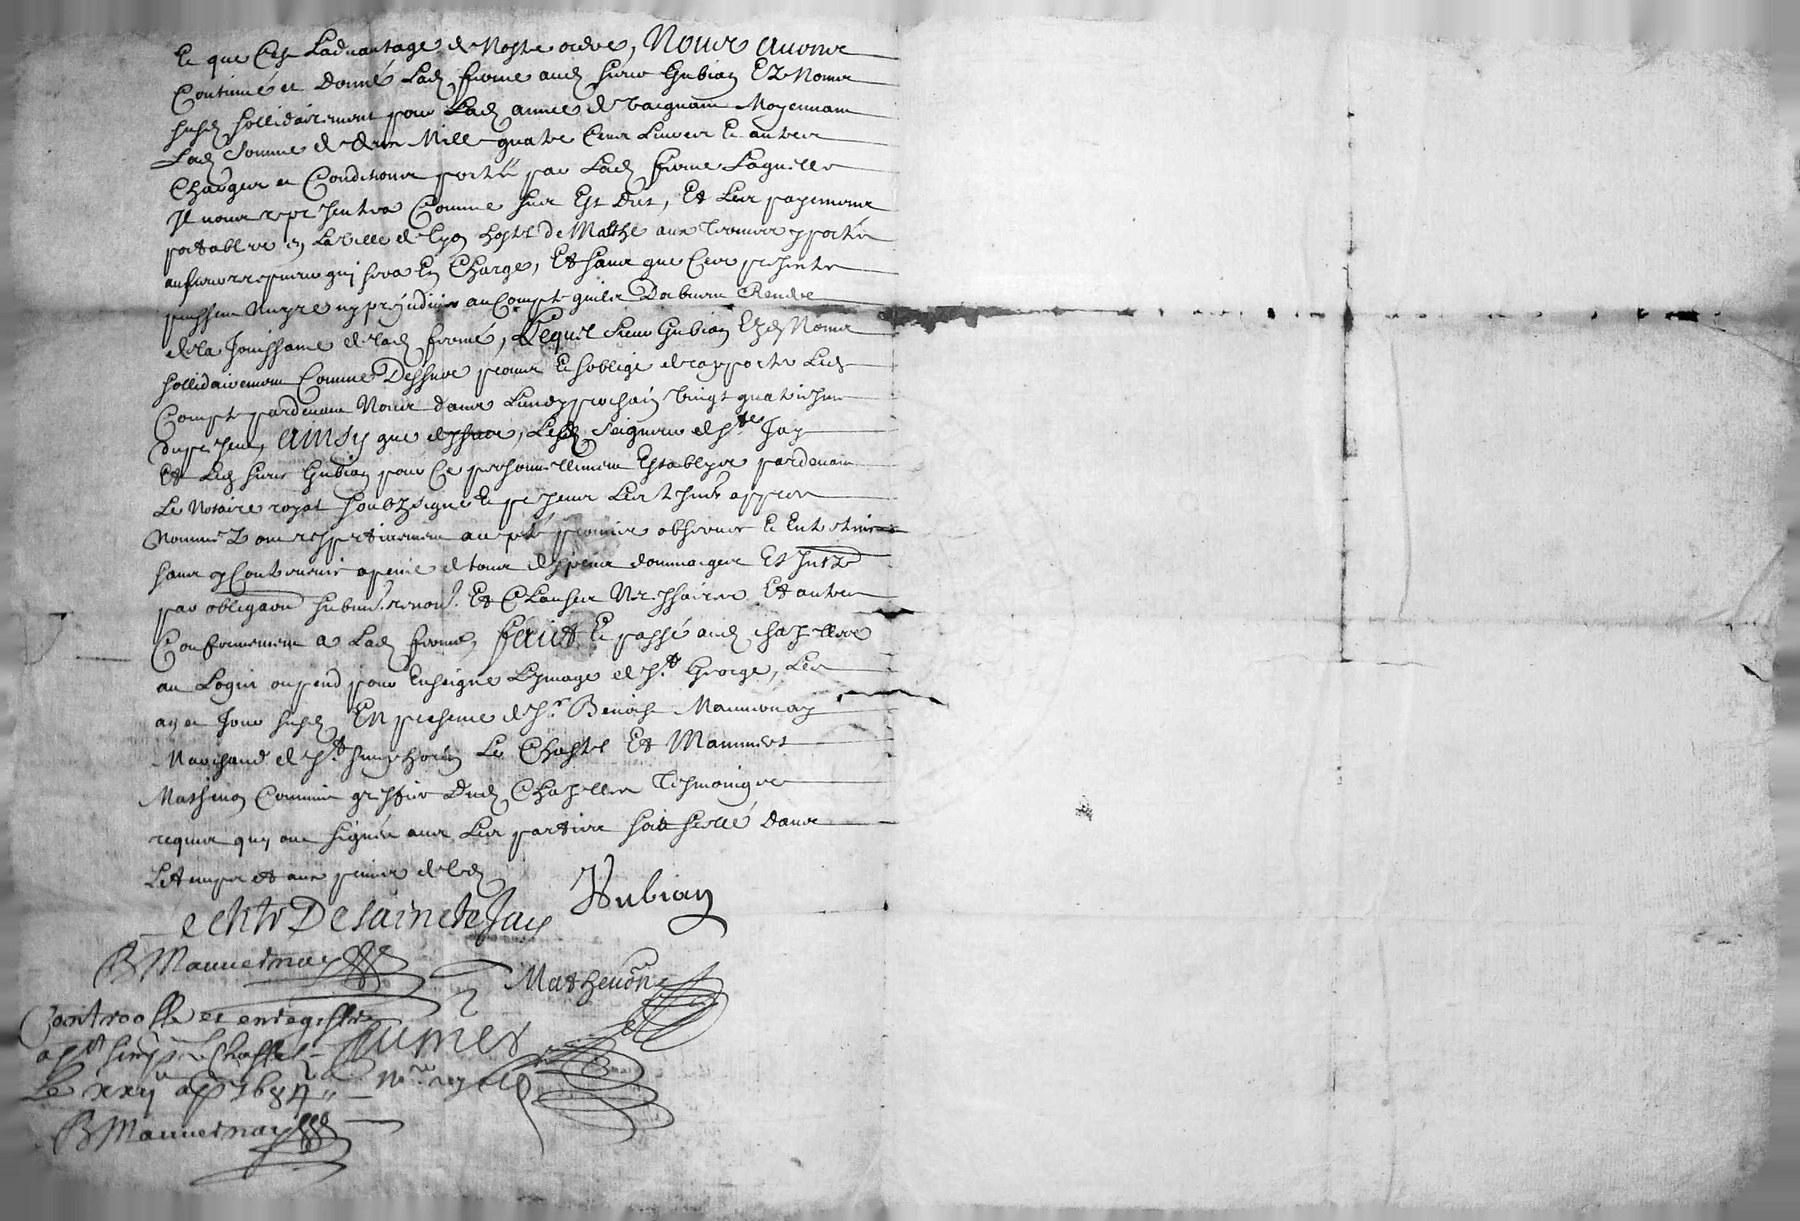 Et que Cest Ladvantage de Nostre ordre, Nous avons
Continué et Donné Lad ferme aud sieur Gubian Ez Noms
susd sollidairement pour Lad année et moyennant
Lad somme de Mille quatre Cens Livres Et autres
Charges et Conditions portés par Lad ferme Laquelle
Il nous representera Comme sus Est Dict, Et Les payements
portables en La Ville de Lyon hostel De Malthe aux Termes y portés
au sieur receveur quy sera En Charge, Et sans que Ces presentes
puissent Nuyre ny prejudicier au Compte quils Doibvent Rendre
de la Jouissance de lad ferme, Lequel sieur Gubian Ezd Noms
sollidairement Comme Dessus promet Et soblige de rapporter Led
Compte pardevant Nous dans Lundy prochain Vingt quatriesme
du present, ainsy que dessus, Lesd Seigneur de Ste Jay
Et Led sieur Gubian pour Ce personnellement Establys pardevant
Le Notaire royal soubzsigné Et presents Les tesmoins appres
Nommez ont respectivement promis observer Et Entretenir
sans y Contrevenir a peine de tous despens dommages Et Intz
par obligaon submis. renon. Et Clauses Necessaires Et autres
Conformement a Lad ferme, faict Et passé aud Chazelles
au Logis ou pend pour Enseigne Lymage de St George, Les
an et Jour susd En presence de Sr Benoist Mauvernay
Marchand de St Simphorien Le Chastel Et Mammert
Mathevon Commis greffier Dud Chazelles Tesmoings
requis quy ont signés avec Les parties soit scellé dans
Le temps et aux peines de led
Le chlr De Saincte Jay Gubian
B Mauvernay Mathevon
Controollé et enregistré
a St Simp. Le Chastel
Le xxij ap 1684 Nre royal
B Mauvernay